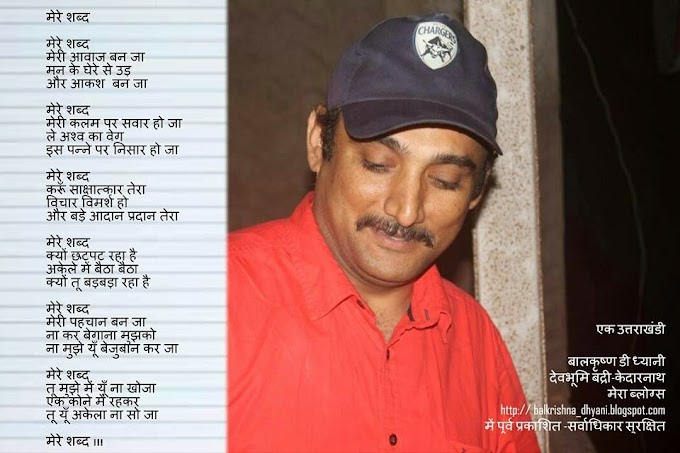 मेरे शब्द

मेरे शब्द
मेरी आवाज बन जा
मन के घेरे से उड़
और आकश बन जा

मेरे शब्द
मेरी कलम पर सवार हो जा
ले अश्व का वेग
इस पन्ने पर निसार हो जा

मेरे शब्द
करूँ साक्षात्कार तेरा
विचार विमर्श हो
और बड़े आदान प्रदान तेरा

मेरे शब्द
क्यों छटपट रहा है
अकेले में बैठा बैठा
क्यों तू बड़बड़ा रहा है

मेरे शब्द
मेरी पहचान बन जा
ना कर बेगाना मुझको
ना मुझे यूँ बेजुबान कर जा

मेरे शब्द
तू मुझे में यूँ ना खोजा
एक कोने में रहकर
तू यूँ अकेला ना सो जा

मेरे शब्द !!!

CHARGERS

एक उत्तराखंडी

बालकृष्ण डी ध्यानी
देवभूमि बद्री-केदारनाथ
मेरा ब्लोग्स
http:// balkrishna_dhyani.blogspot.com
में पूर्व प्रकाशित -सर्वाधिकार सुरक्षित